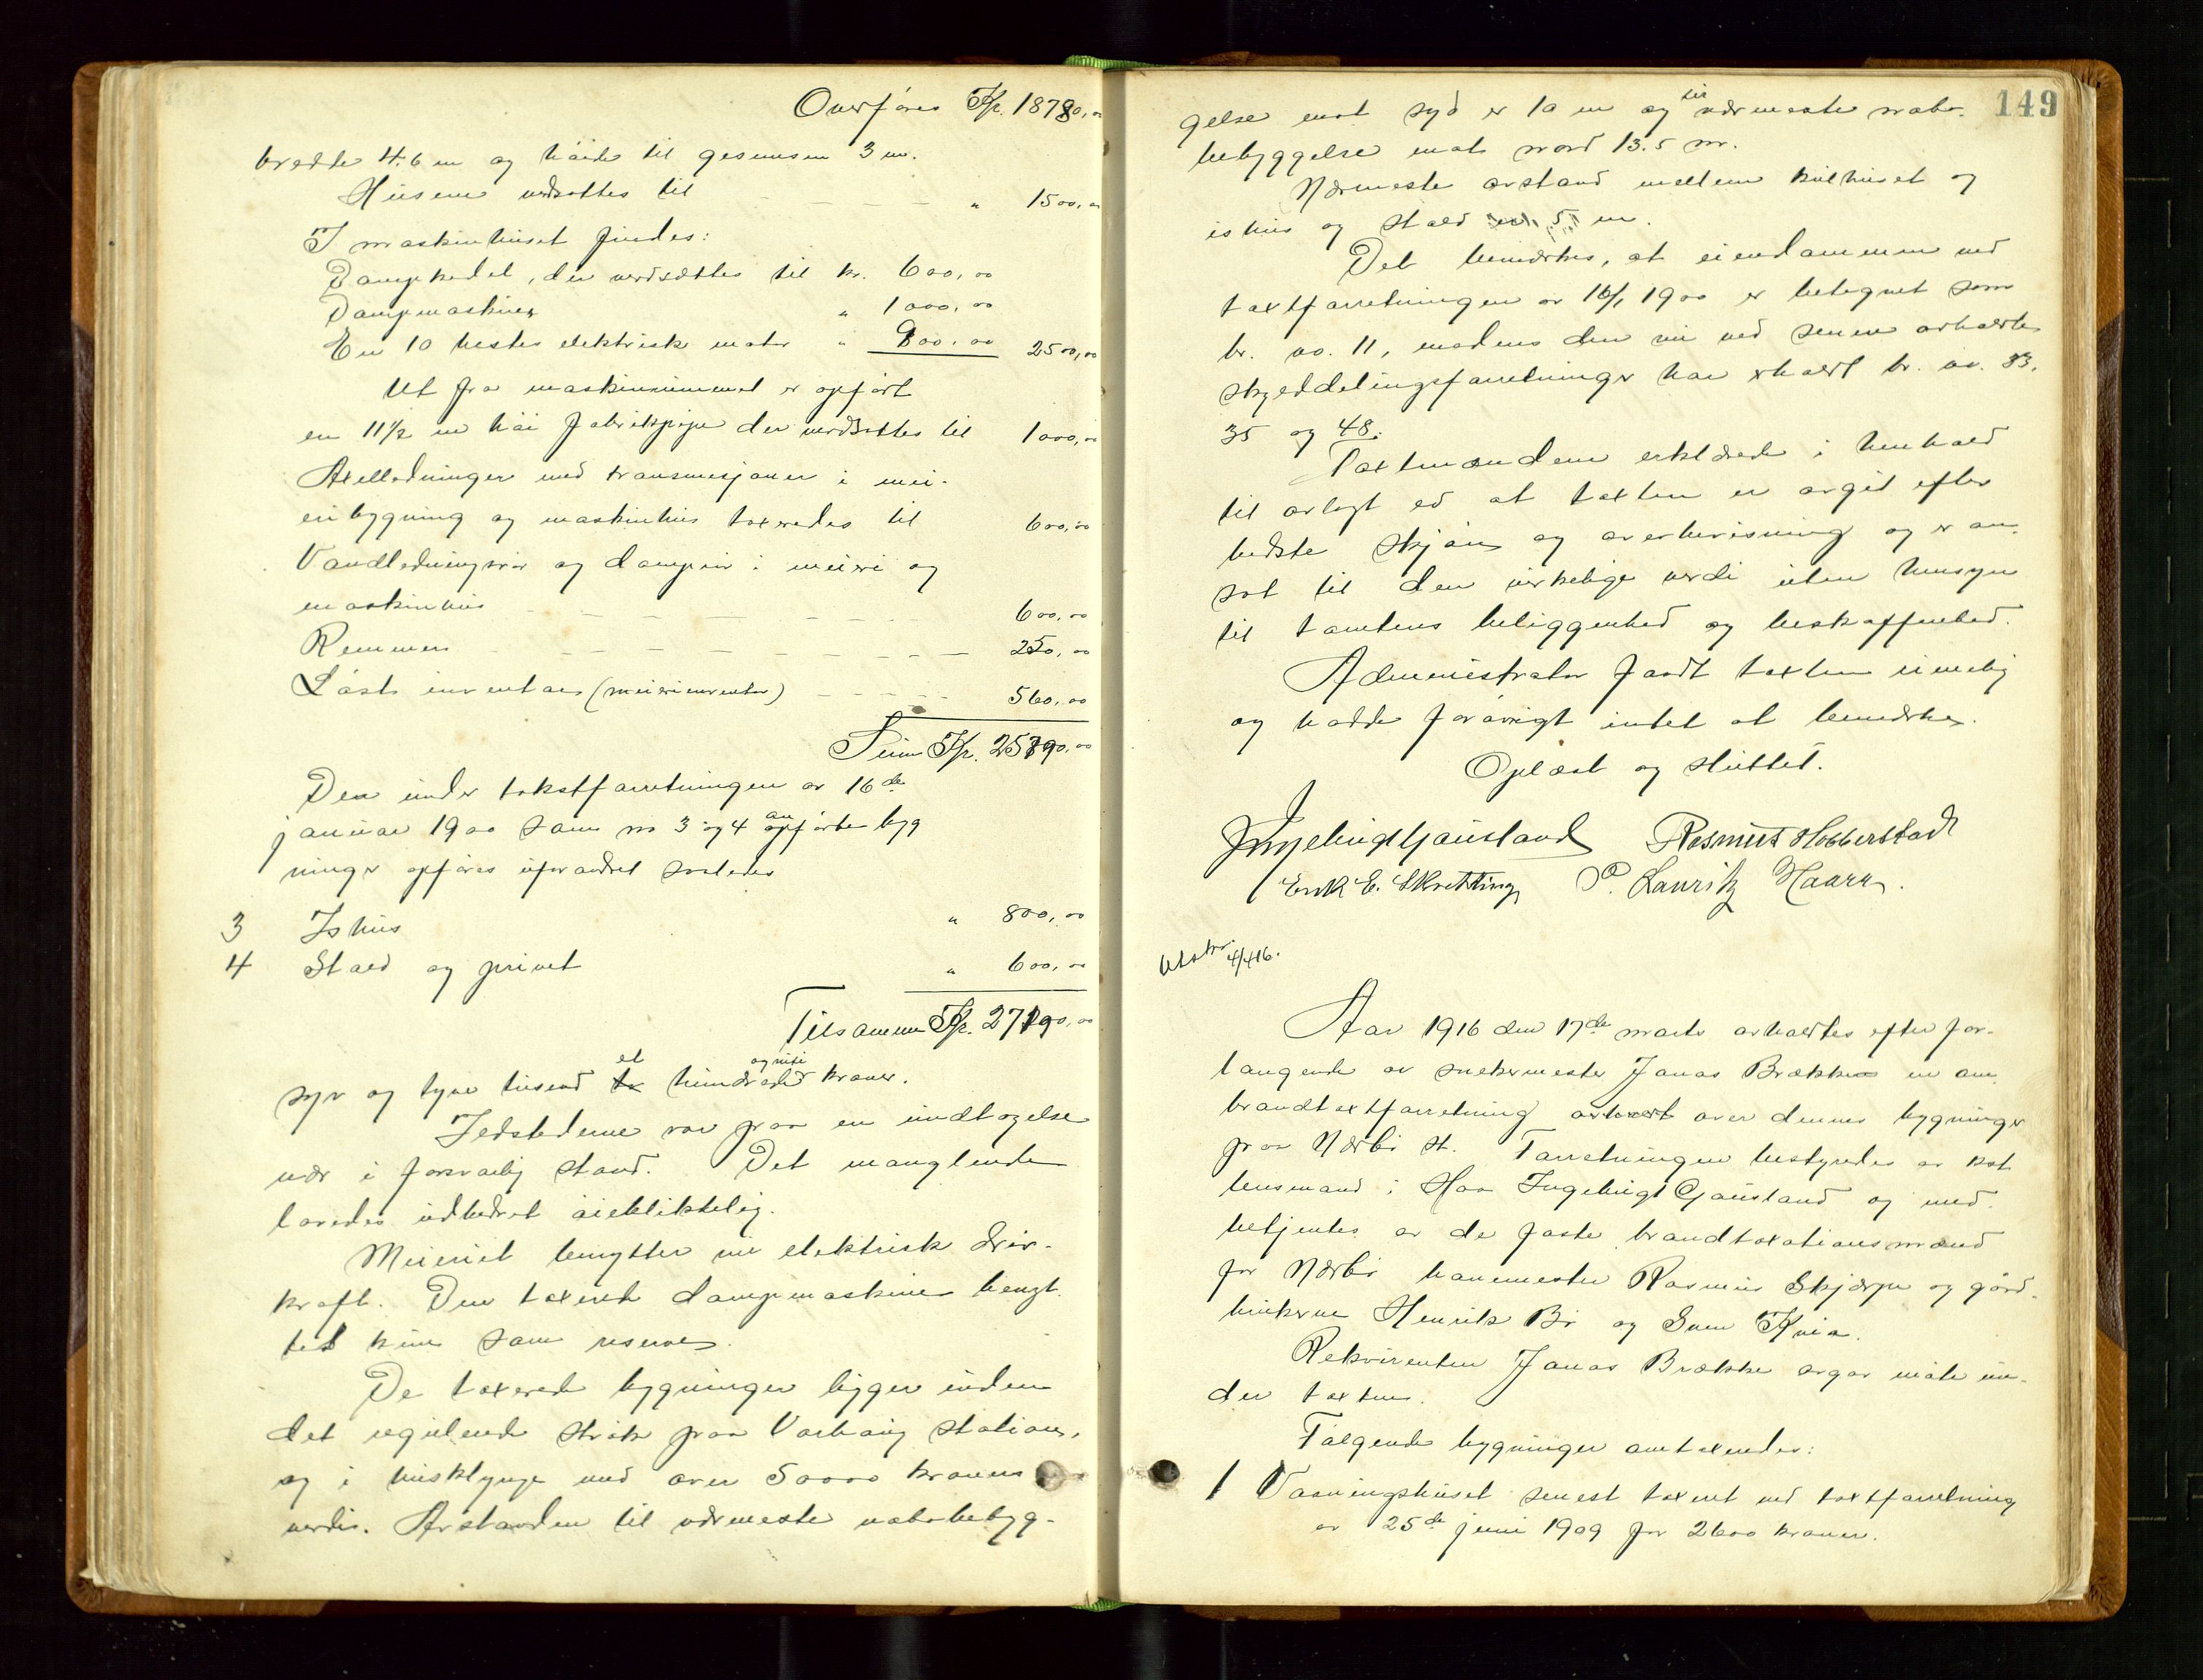 Overføres Kr. 18780,00
bredde 4.6 m og høide til gesemsen 3 m.
Husene verdsættes til " 1500,00
I maskinhuset findes:
Dampkedel, der verdsættes til kr. 600,00
Dampmaskiner " 1000,00
En 10 hestes elektrisk motor " 900,00 2500,00
Ut fra maskinrummet er opført
en 11½ m høi fabrikpipe der verdsættes til 1000,00
Axelledninger med transmisjoner i mei-
eribygning og maskinhus taxeredes til 600,00
Vandledningsrør og damprør i meieri og
maskinhus 600,00
Remmer 250,00
Løst inventar (meieriinventar) 560,00
Sum Kr. 25790,00
Den under takstforretningen av 16de
januar 1900 som no 3 og 4 anførte byg
ninger opføres uforandret saaledes
3 Ishus " 800,00
4 Stald og privet " 600,00
Tilsammen Kr. 27190,00
syv og tyve tusend et hundrede og niti kroner.
Ildstederne var paa en undtagelse
nær i forsvarlig stand. Det manglende
loves udbedret øieblikkelig.
Meieriet benytter nu elektrisk driv-
kraft. Den taxerede dampmaskine benyt-
tes kun som reserve.
De taxerede bygninger ligger inden
det regulerede strøk paa Varhaug station,
og i husklynge med over 50000 kroners
verdi. Avstanden til nærmeste nabobebyg-
149
gelse mot syd er 10 m og til nærmeste nabo-
bebyggelse mot nord 13.5 m.
Nærmeste avstand mellem kulhuset og
ishus og stald er 5 m.
Det bemerkes, at eiendommen ved
taxtforretningen av 16/1 1900 er betegnet som
br. no. 11, medens den nu ved senere avholdte
skylddelingsforretninger har erholdt br. no. 33,
35 og 48.
Taxtmændene erklærede i henhold
til avlagt ed at taxten er avgit efter
bedste skjøn og overbevisning og er an-
sat til den virkelige verdi uten hensyn
til tomtens beliggenhed og beskaffenhed.
Administrator fandt taxten rimelig
og hadde forøvrigt intet at bemerke.
Oplæst og sluttet.
Ingebrigt Gausland Rasmus Hobberstad
Erik E. Skretting P. Lauritz Haarr.
Utskr. 4/4 16.
Aar 1916 den 17de marts avholdtes efter for-
langende av snekermester Jonas Brække en om
brandtaxtforretning over dennes bygninger
paa Nærbø st. Forretningen bestyredes av kst
lensmand i Haa Ingebrigt Gausland og med-
betjentes av de faste brandtaxationsmænd
for Nærbø banemester Rasmus Skjærpe og gård-
brukerne Henrik Bø og Sven Kvia.
Rekvirenten Jonas Brække avgav møte un-
der taxten.
Følgende bygninger omtaxeredes:
1 Vaaningshuset senest taxeret ved taxtforretning
av 25de juni 1909 for 2600 kroner.